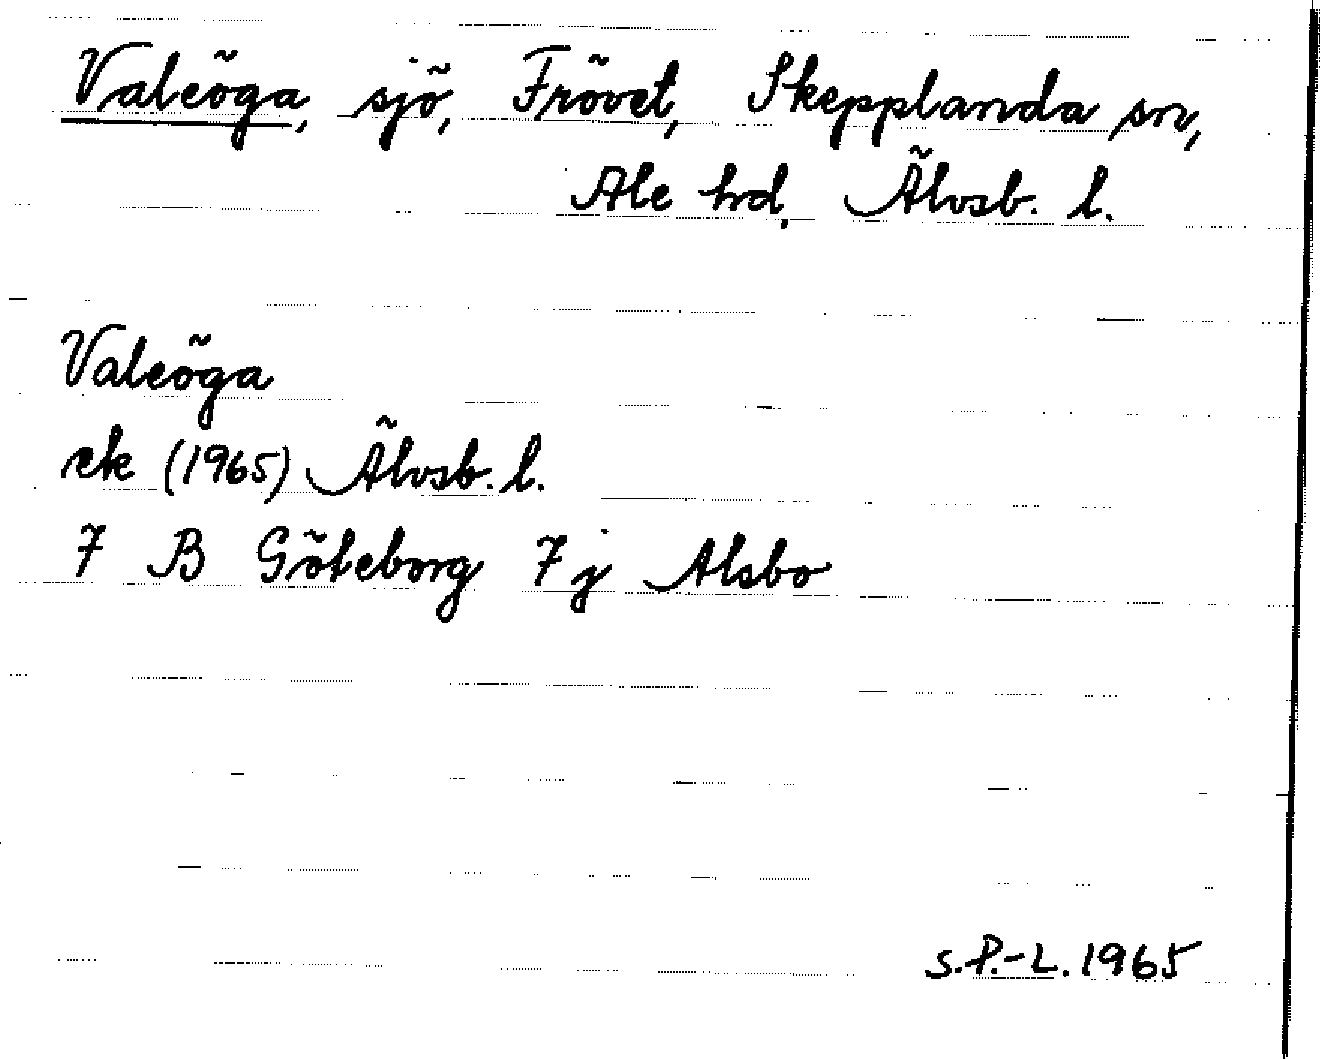 Valeöga, sjö, Frövet, Skepplanda sn,
Ale hd, Älvsb. l.
Valeöga
ek (1965) Älvsb. l.
7 B Göteborg 7 j Alsbo
S.P.-L. 1965